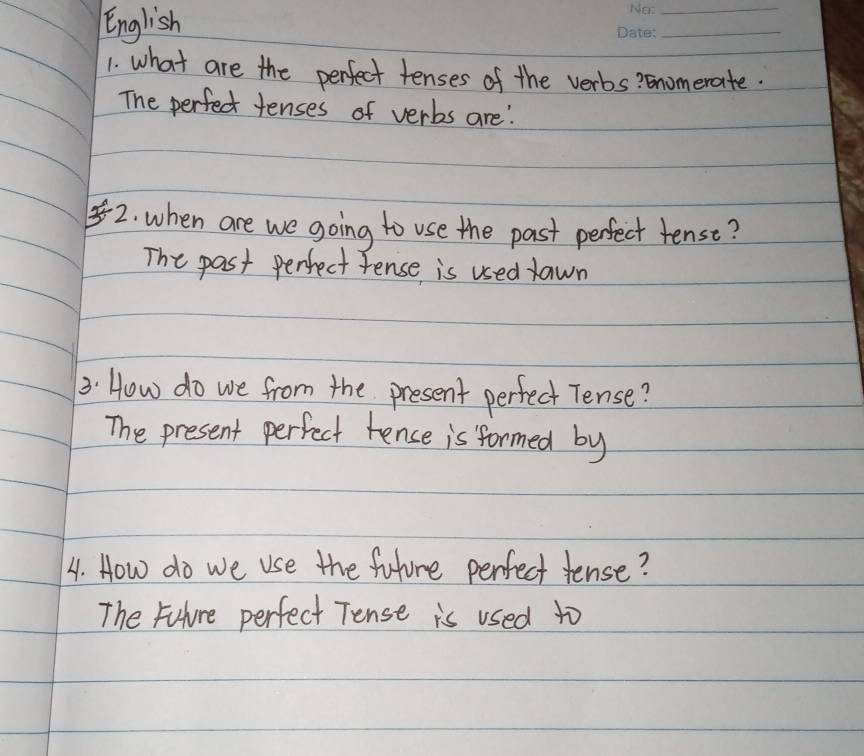 No:
Date:
English
1. What are the perfect tenses of the verbs? Enumerate.
The perfect tenses of verbs are:
2. When are we going to use the past perfect tense?
The past perfect tense is used tawn
3. How do we from the present perfect Tense?
The present perfect tense is formed by
4. How do we use the future perfect tense?
The Future perfect Tense is used to